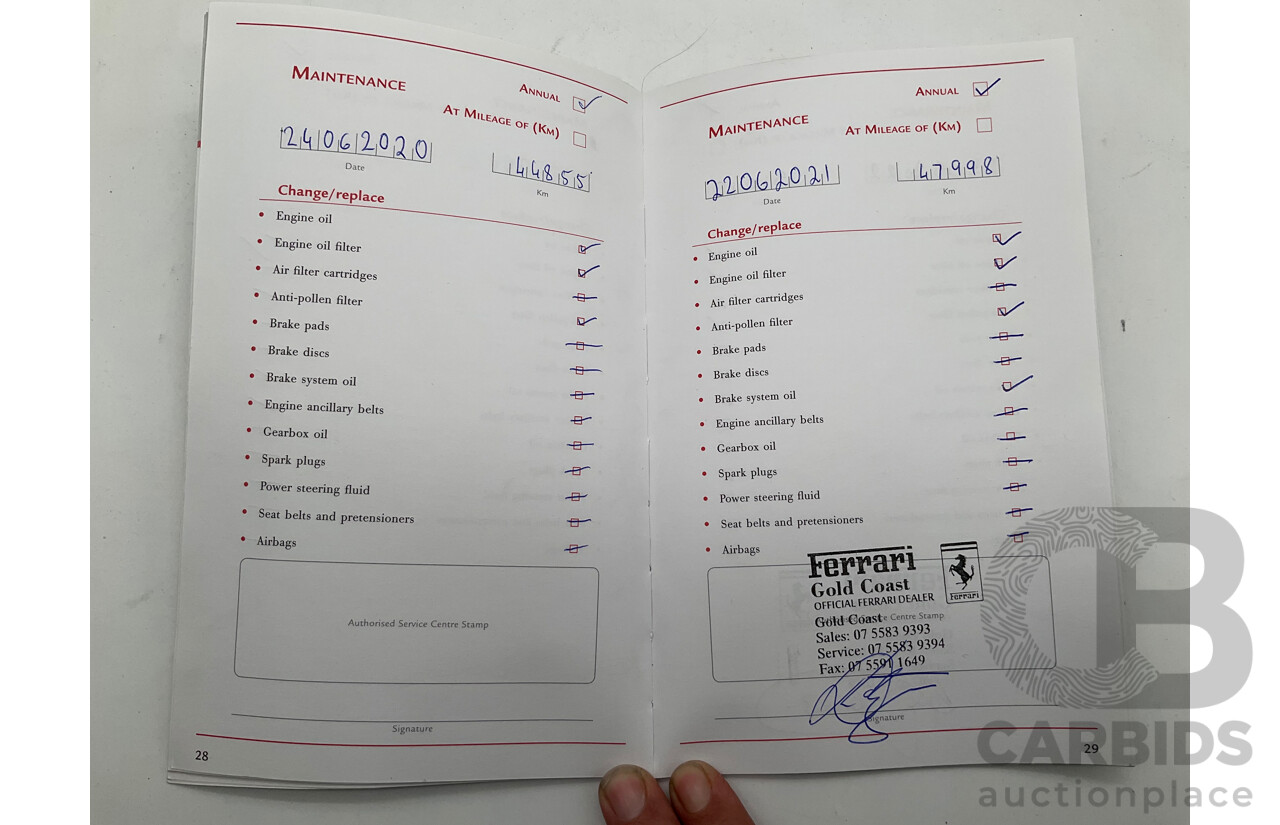 MAINTENANCE
ANNUAL
AT MILEAGE OF (KM)
24062020
Date
44855
Km
Change/replace
• Engine oil
• Engine oil filter
• Air filter cartridges
• Anti-pollen filter
• Brake pads
• Brake discs
• Brake system oil
• Engine ancillary belts
• Gearbox oil
• Spark plugs
• Power steering fluid
• Seat belts and pretensioners
• Airbags
Authorised Service Centre Stamp
Signature
28
ANNUAL
MAINTENANCE
AT MILEAGE OF (KM)
22062021
Date
47998
Km
Change/replace
• Engine oil
• Engine oil filter
• Air filter cartridges
• Anti-pollen filter
• Brake pads
• Brake discs
• Brake system oil
• Engine ancillary belts
• Gearbox oil
• Spark plugs
• Power steering fluid
• Seat belts and pretensioners
• Airbags
Ferrari
Gold Coast
OFFICIAL FERRARI DEALER
Ferrari
Gold Coast
Centre Stamp
Sales: 07 5583 9393
Service: 07 5583 9394
Fax: 07 5591 1649
Signature
29
CB
CARBIDS
auctionplace